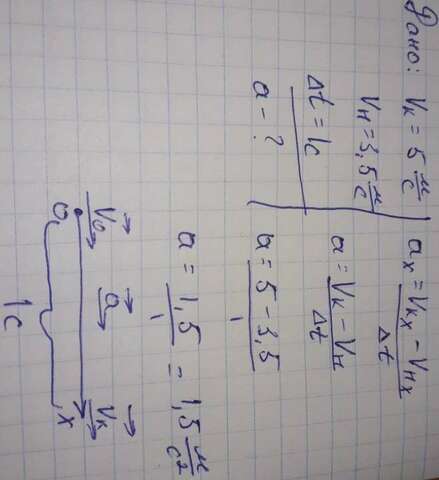 Дано:
Vк = 5 м/с
Vн = 3,5 м/с
Δt = 1с
a - ?
aₓ = Vкx - Vнx / Δt
a = Vк - Vн / Δt
a = 5 - 3,5 / 1
a = 1,5 / 1 = 1,5 м/с²
V₀ a Vк
0 x
1с